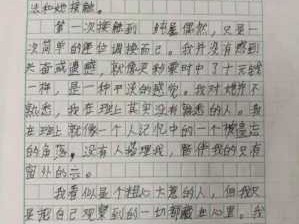 法和她接触。
第一次接触到 纯属偶然，只是一
次简单的座位调换而已。我并没有感到
失落或遗憾，就像买彩票时中了十元钱
一样，是一种平淡的感觉。我对她并不
熟悉，我在班上其实没有熟悉的人。我
在班上就像一个人记忆中的一个被遗忘
的角落，没有人搭理我，陪伴我的只有
窗外的云。
我看似是个粗心大意的人，但我只
是把自己观察到的一切都藏在心里。我